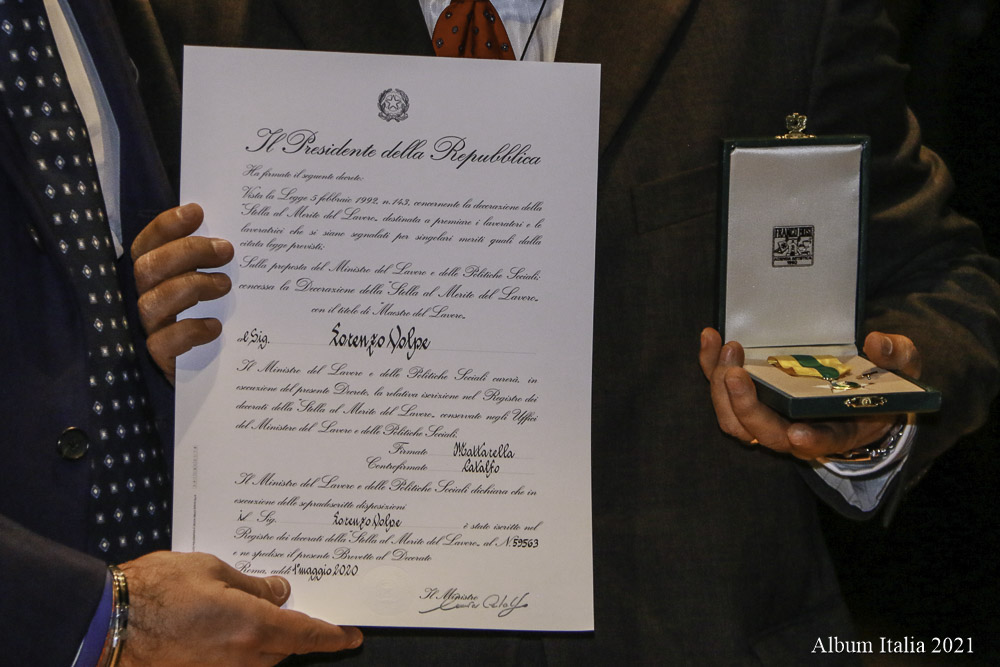 Il Presidente della Repubblica
Ha firmato il seguente decreto:
Vista la Legge 5 febbraio 1992, n. 143, concernente la decorazione della
"Stella al Merito del Lavoro", destinata a premiare i lavoratori e le
lavoratrici che si siano segnalati per singolari meriti quali dalla
citata legge previsti;
Sulla proposta del Ministro del Lavoro e delle Politiche Sociali:
concessa la Decorazione della "Stella al Merito del Lavoro"
con il titolo di "Maestro del Lavoro"
al Sig. Lorenzo Volpe
Il Ministro del Lavoro e delle Politiche Sociali curerà, in
esecuzione del presente Decreto, la relativa iscrizione nel Registro dei
decorati della "Stella al Merito del Lavoro", conservato negli Uffici
del Ministero del Lavoro e delle Politiche Sociali.
Firmato Mattarella
Controfirmato Catalfo
Il Ministro del Lavoro e delle Politiche Sociali dichiara che in
esecuzione delle sopradescritte disposizioni
il Sig. Lorenzo Volpe è stato iscritto nel
Registro dei decorati della "Stella al Merito del Lavoro" al N. 59563
e ne spedisce il presente Brevetto al Decorato
Roma, addì 1° maggio 2020
Il Ministro
Album Italia 2021